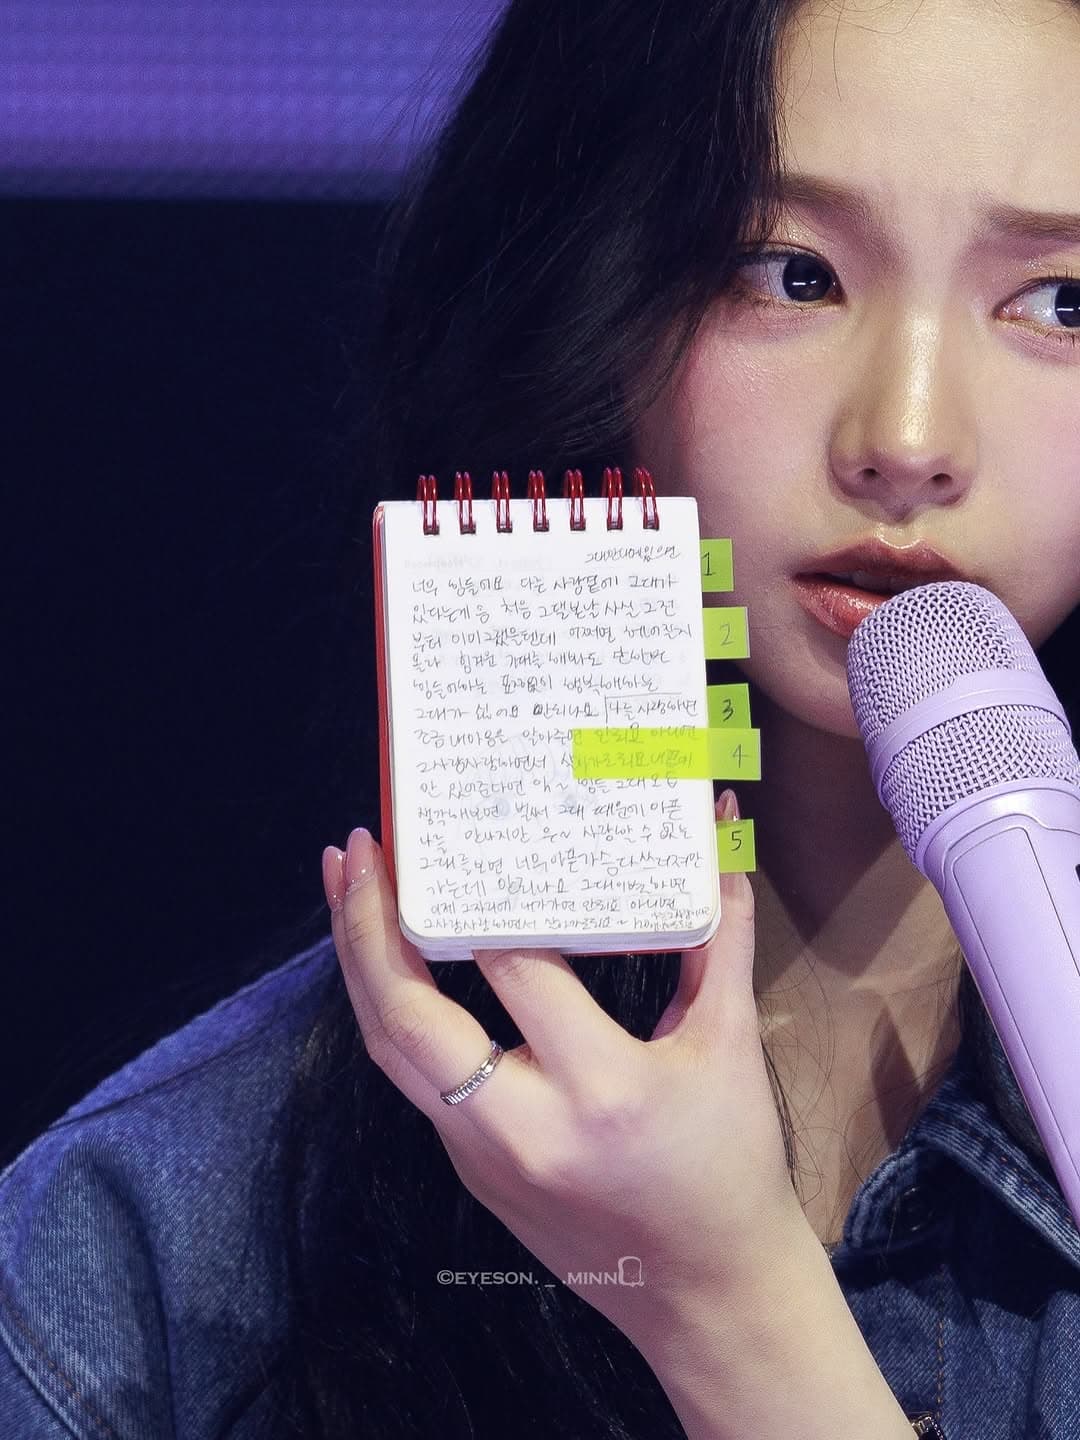 그대만 곁에 있으면
1
너무 힘들어요 다른 사랑 곁에 그대가
있다는게 음 처음 그댈 본 날 사실 그전
2
부터 이미 그랬을텐데 어쩌면 헤어진지
몰라 힘겨운 기대를 해봐도 단 한번
힘들어하는 표정없이 행복해하는
3
그대가 싫어요 안되나요 나를 사랑하면
조금 내 마음을 알아주면 안되요 아니면
4
그사람 사랑하면서 살아가도 되요 내곁에
만 있어준다면 예~ 힘들 그대모습
생각해보면 벌써 그대 때문에 아픈
5
나를 만나지만 우~ 사랑할 수 없는
그대를 보면 너무 아픈 가슴 다 쓰러져만
가는데 안되나요 그대 이별하면
이제 그자리에 내가가면 안되요 아니면
그사람 사랑하면서 살아가도되요~
©EYESON._.MINN